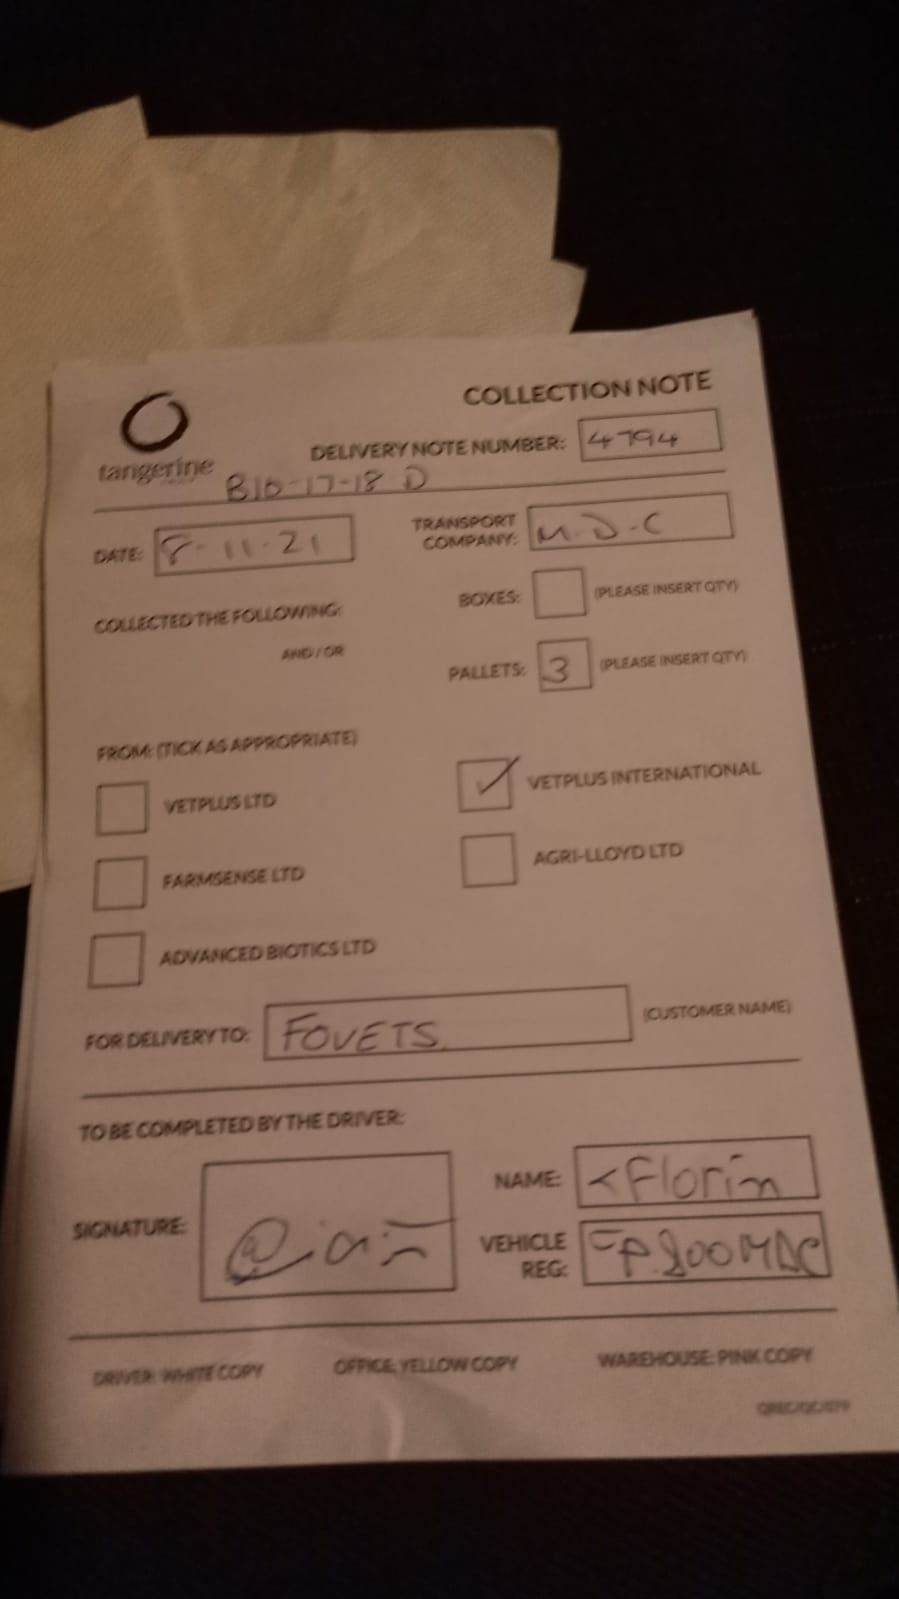 COLLECTION NOTE
tangerine
DELIVERY NOTE NUMBER: 4794
B10-17-18 D
DATE: 8-11-21
TRANSPORT COMPANY: M.D.C
COLLECTED THE FOLLOWING:
BOXES: (PLEASE INSERT QTY)
AND / OR
PALLETS: 3 (PLEASE INSERT QTY)
FROM: (TICK AS APPROPRIATE)
VETPLUS LTD
VETPLUS INTERNATIONAL
FARMSENSE LTD
AGRI-LLOYD LTD
ADVANCED BIOTICS LTD
FOR DELIVERY TO: FOVETS (CUSTOMER NAME)
TO BE COMPLETED BY THE DRIVER:
SIGNATURE:
NAME: Florin
VEHICLE REG: 800MDC
DRIVER: WHITE COPY
OFFICE: YELLOW COPY
WAREHOUSE: PINK COPY